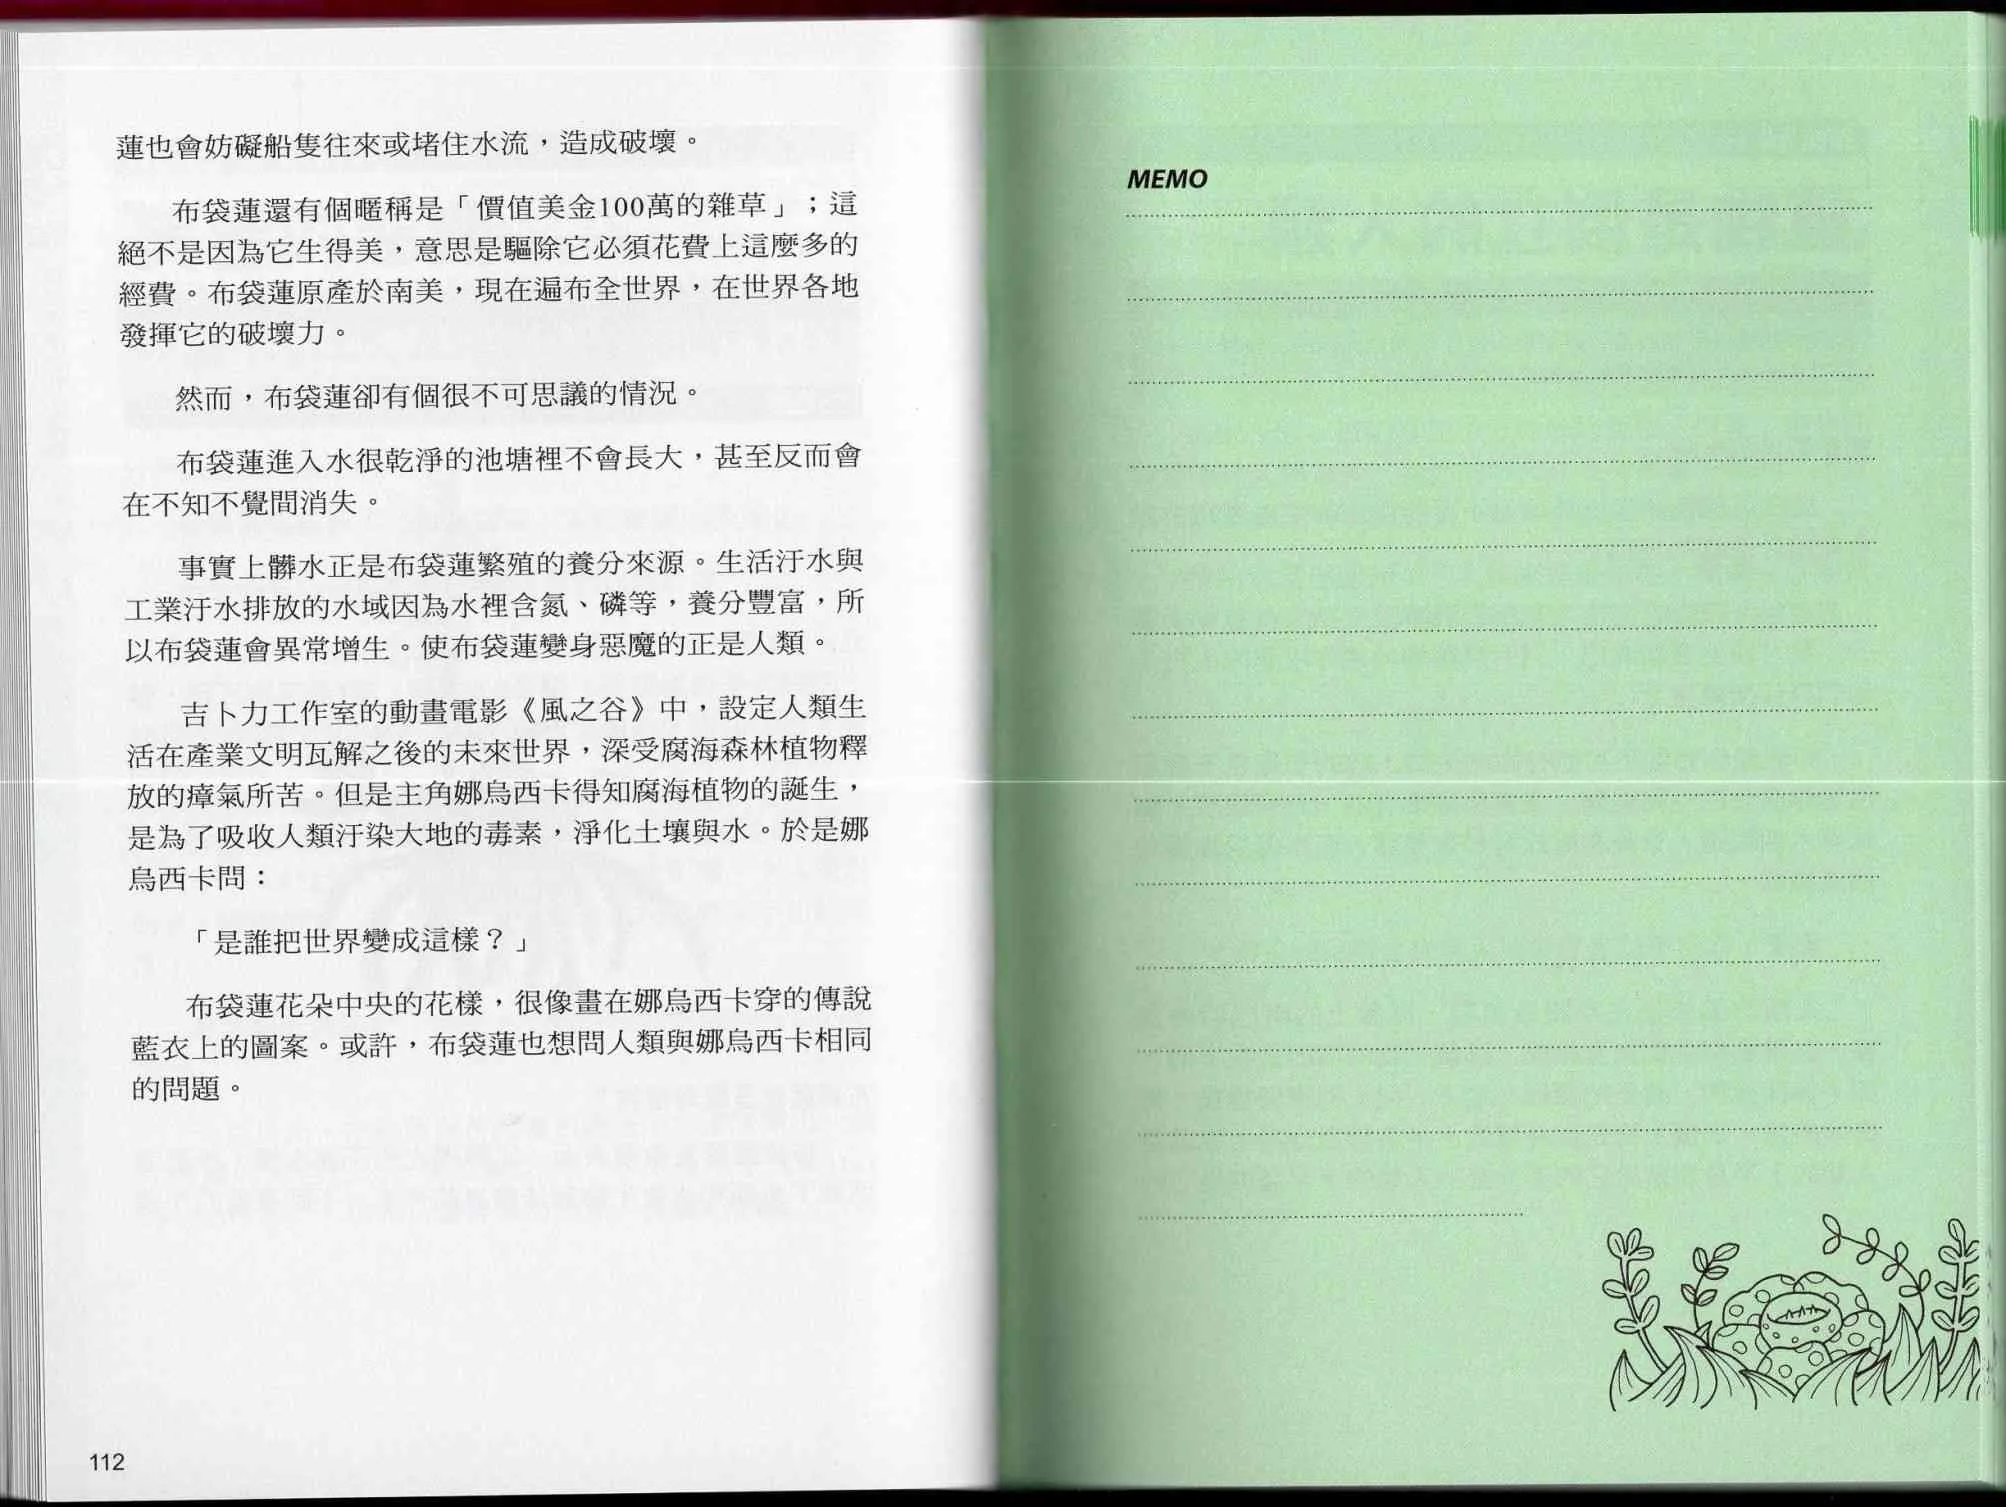 蓮也會妨礙船隻往來或堵住水流，造成破壞。
布袋蓮還有個暱稱是「價值美金100萬的雜草」；這
絕不是因為它生得美，意思是驅除它必須花費上這麼多的
經費。布袋蓮原產於南美，現在遍布全世界，在世界各地
發揮它的破壞力。
然而，布袋蓮卻有個很不可思議的情況。
布袋蓮進入水很乾淨的池塘裡不會長大，甚至反而會
在不知不覺間消失。
事實上髒水正是布袋蓮繁殖的養分來源。生活汙水與
工業汙水排放的水域因為水裡含氮、磷等，養分豐富，所
以布袋蓮會異常增生。使布袋蓮變身惡魔的正是人類。
吉卜力工作室的動畫電影《風之谷》中，設定人類生
活在產業文明瓦解之後的未來世界，深受腐海森林植物釋
放的瘴氣所苦。但是主角娜烏西卡得知腐海植物的誕生，
是為了吸收人類汙染大地的毒素，淨化土壤與水。於是娜
烏西卡問：
「是誰把世界變成這樣？」
布袋蓮花朵中央的花樣，很像畫在娜烏西卡穿的傳說
藍衣上的圖案。或許，布袋蓮也想問人類與娜烏西卡相同
的問題。
112
MEMO